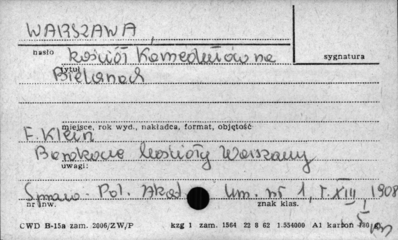 WARSZAWA,
hasło kościół Kamedułów na
sygnatura
tytuł
Bielanach
miejsce, rok wyd., nakładca, format, objętość
F. Klein
Barokowe kościoły Warszawy
uwagi:
Spraw. Pol. Akad. Um. nr 1, T. XIII, 1908
nr inw. znak klas.
CWD B-15a zam. 2006/ZW/P kzg 1 zam. 1564 22 8 62 1.554000 A1 karton